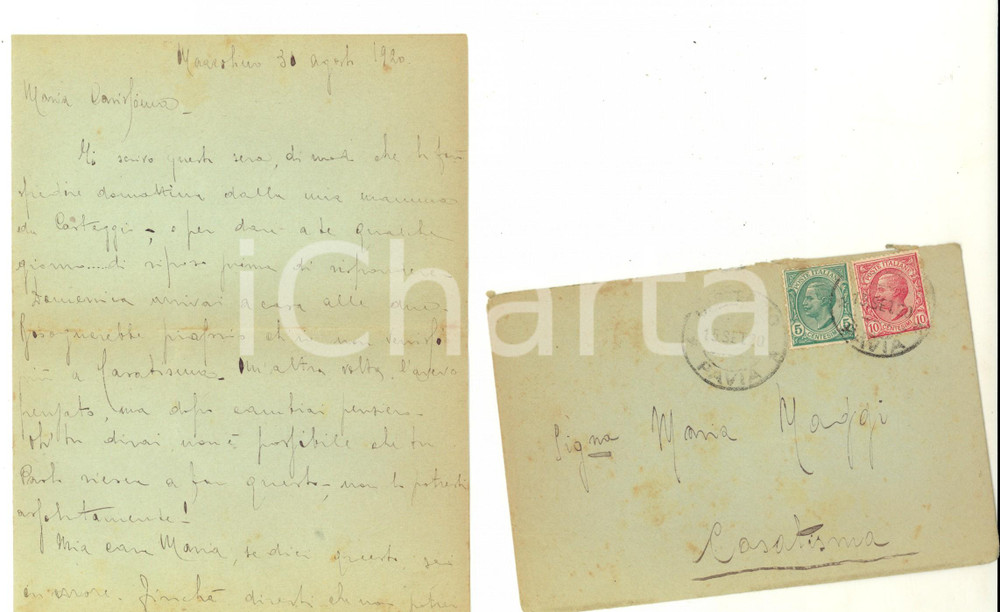 30 agosto 1920
Maria Carissima
Ti scrivo questa sera, di modo che ti farò
spedire domattina dalla mia mamma
da Casteggio, e per dare a te qualche
giorno.....di riposo prima di rispondere.
Domenica arrivai a casa alle due.
Bisognerebbe proprio che io non venissi
più a Casatisma. Un'altra volta, l'avevo
pensato, ma dopo cambiai pensiero.
Oh! tu dirai non è possibile che tu
Paolo riesca a far questo, non lo potresti
assolutamente!
Mia cara Maria, se dici questo sei
in errore. Finchè diresti che non
iCharta
POSTE ITALIANE
5 CENTESIMI 5
POSTE ITALIANE
10 CENTESIMI 10
15 SET
PAVIA
PAVIA
Signa Maria Maggi
Casatisma